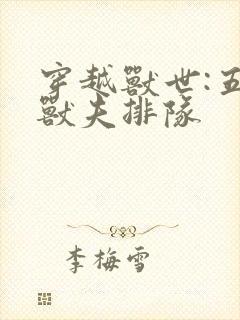 穿越獸世:五
獸夫排隊
李梅雪